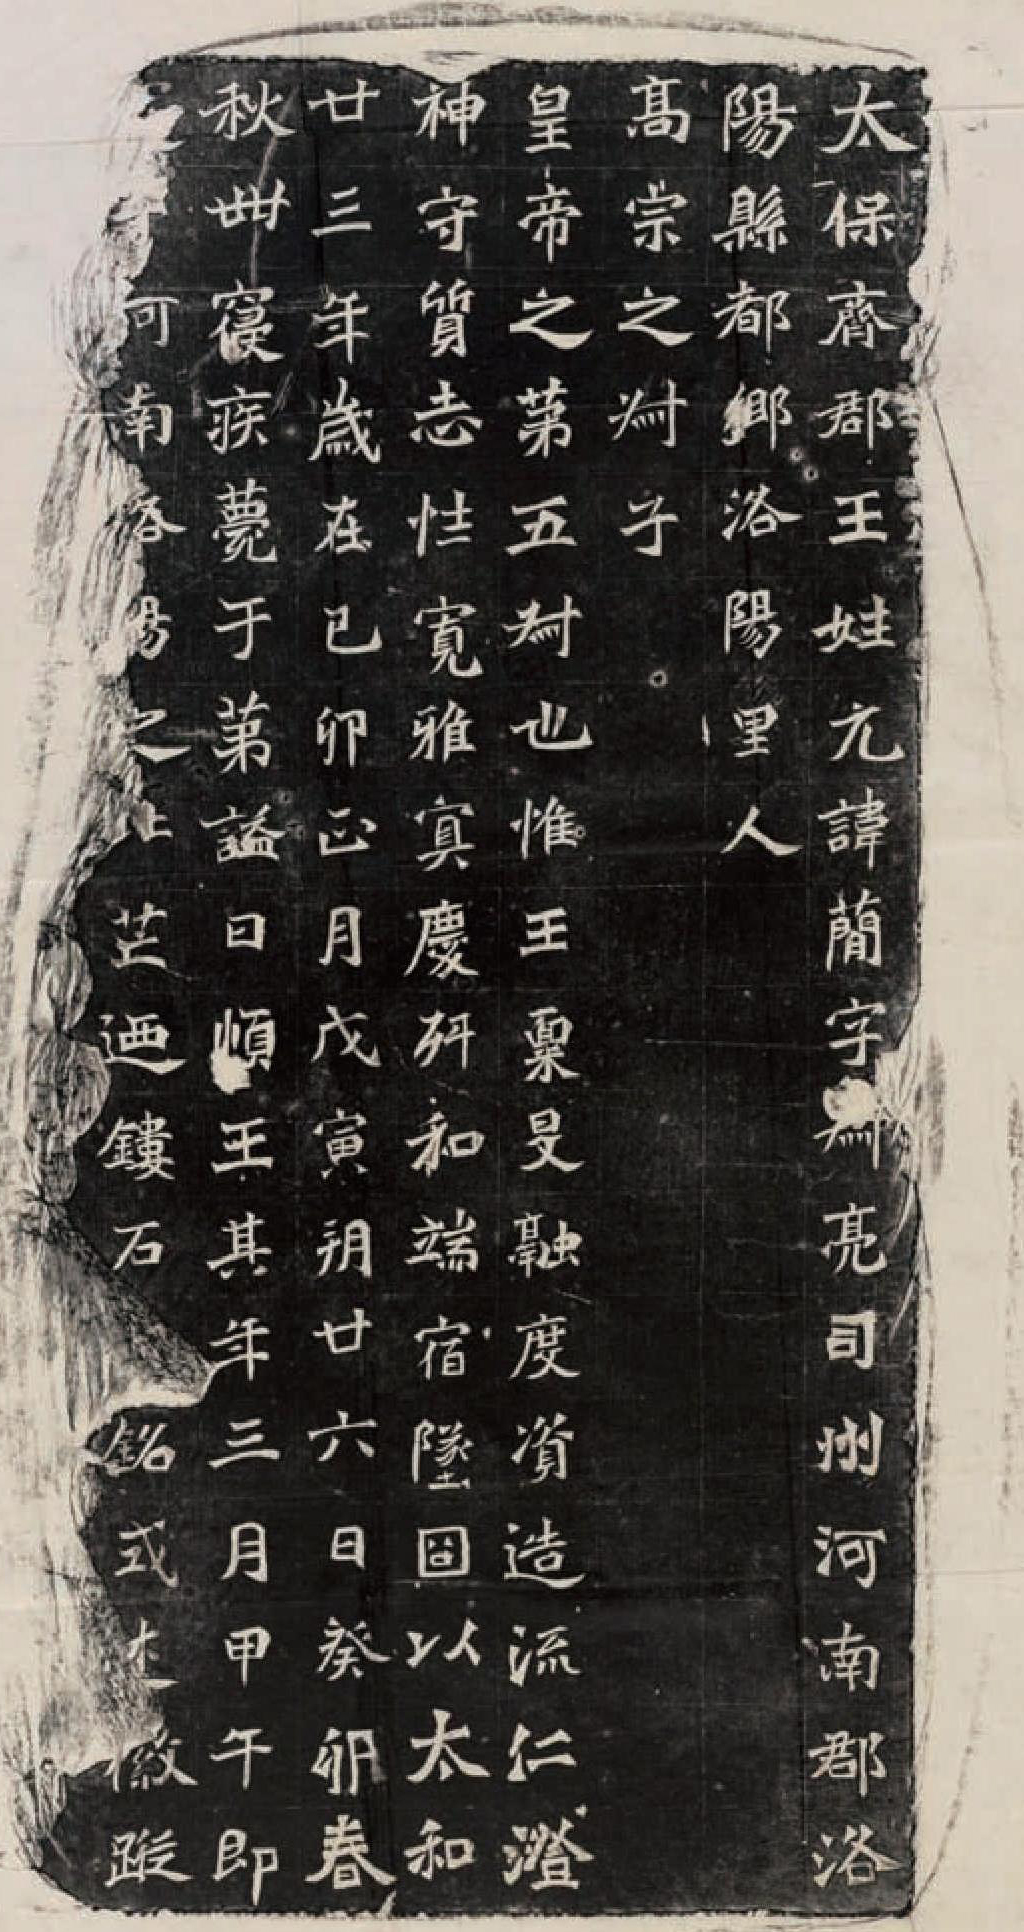 太保齊郡王姓元諱簡字叔亮司州河南郡洛
陽縣都鄉洛陽里人
高宗之叔子
皇帝之第五叔也惟王稟旻融度資造流仁澄
神守質志性寬雅寘慶舛和端宿墜固以太和
廿三年歲在己卯正月戊寅朔廿六日癸卯春
秋卌寢疾薨于第謚曰順王其年三月甲午即
河南洛陽之北芒迺鏤石銘式述徽蹤